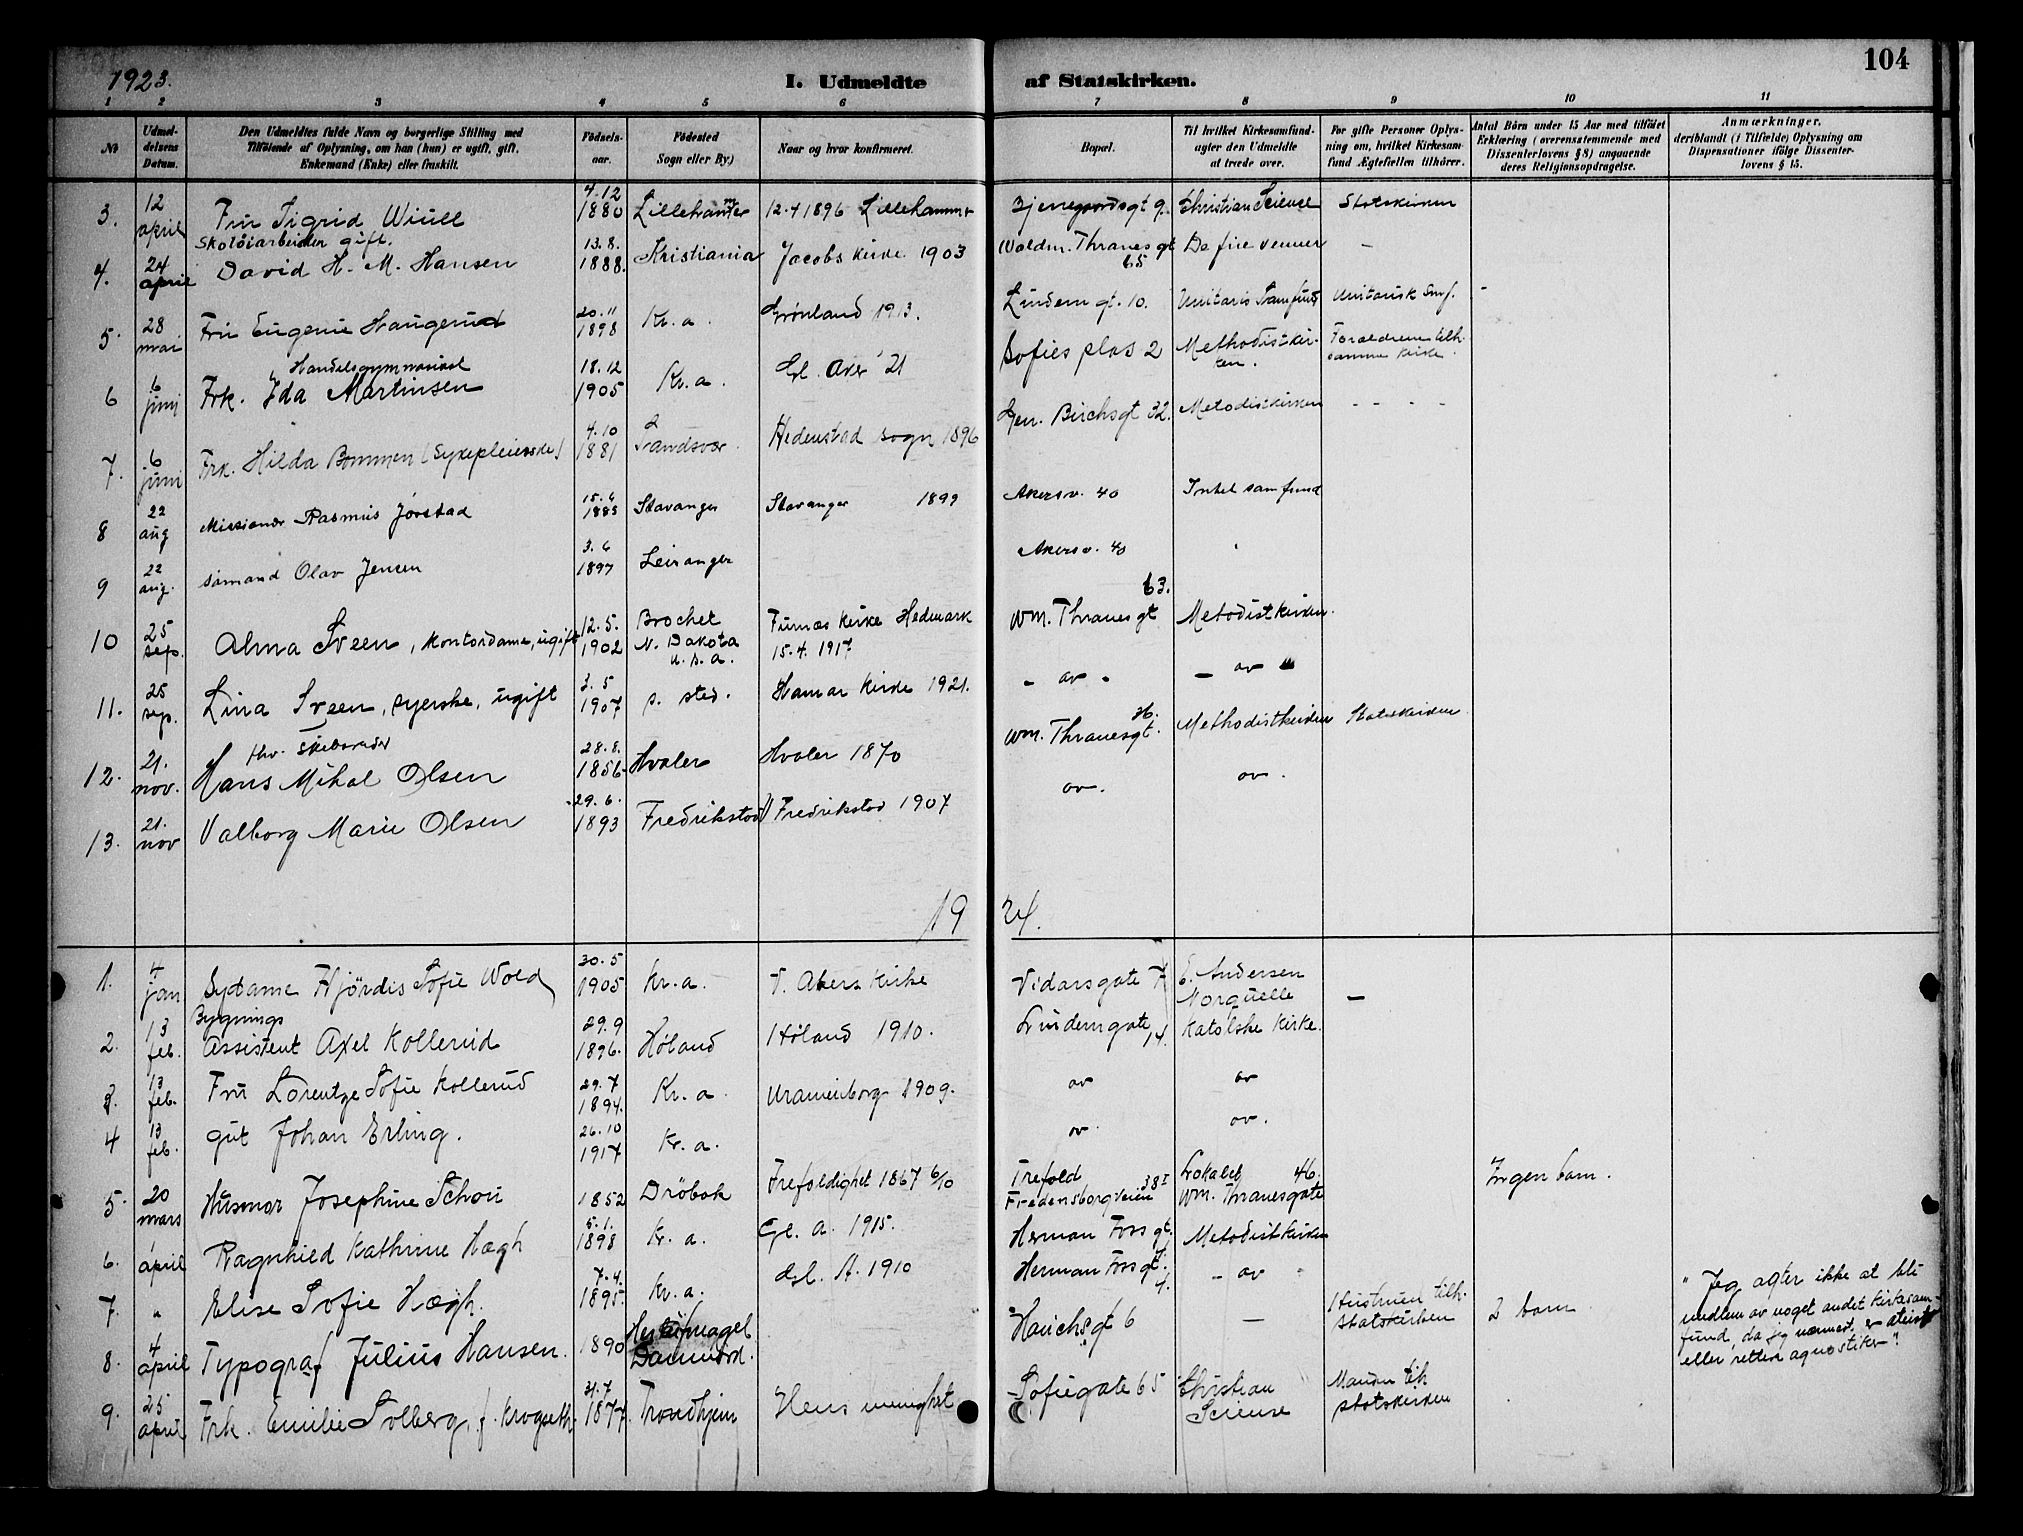 1923.
I. Udmeldte af Statskirken.
104
1 2 3 4 5 6 7 8 9 10 11
No
Udmeldelsens Datum.
Den Udmeldtes fulde Navn og borgerlige Stilling med
Tilføiende af Oplysning, om han (hun) er ugift, gift,
Enkemand (Enke) eller fraskilt.
Fødselsaar.
Fødested
Sogn eller By)
Naar og hvor konfirmeret.
Bopæl.
Til hvilket Kirkesamfund
agter den Udmeldte
at træde over.
For gifte Personer Oplys-
ning om, hvilket Kirkesam-
fund Ægtefællen tilhører.
Antal Børn under 15 Aar med tilføiet
Erklæring (overensstemmende med
Dissenterlovens § 8) angaaende
deres Religionsopdragelse.
Anmærkninger,
deriblandt (i Tilfælde) Oplysning om
Dispensationer ifølge Dissenter-
lovens § 15.
3. 12 april Fru Sigrid Wiull 4.12 1880 Lillehammer 12.4 1896 Lillehammer Bjerregaardsgt 9. Christian Sciense Statskirken
4. 24 april Skotöiarbeider gift. David H. M. Hansen 13.8. 1888. Kristiania Jacobs kirke 1903 Waldm. Thranes gt 65 De frie venner -
5. 28 mai Fru Eugenie Haugerud 20.11 1898 Kr.a. Grønland 1913. Lindem gt. 10. Unitaris Samfund Unitarisk Smf. -
6 6 juni Handelsgymnasiast Frk. Ida Martinsen 18.12 1905 Kr.a. Gl. Aker '21 Sofies plas 2 Methodistkirken. Forældrene tilh. samme kirke.
7. 6 juni Frk. Hilda Bommen (Sykepleierske) 4.10 1881 Sandsvær Hedenstad sogn 1896 Gen. Birchsgt 32. Metodistkirken - - - -
8 22 aug Missionær Rasmus Jørstad 15.6 1885 Stavanger Stavanger 1899 Akersv. 40
9 22 aug. sømand Olav Jensen 3.6 1897 Leiranger Akersv. 40
10 25 sep. Alma Sveen, kontordame, ugift 12.5. 1902 Brochet N. Dakota U.S.A. Furnes kirke Hedmark 15.4.1917 Wm. Thranesgt 63. Metodistkirken.
11. 25 sep. Lina Sveen, syerske, ugift 3.5 1907 s. sted. Hamar kirke 1921. - av - - av -
12. 21. nov. Hans Mikal Olsen 28.8. 1856. Hvaler Hvaler 1870 Wm. Thranesgt. Methodistkirken Statskirken
13. 21. nov Valborg Marie Olsen 29.6. 1893 Fredrikstad Fredrikstad 1907 av. av.
1924.
1. 4 jan Sydame Hjördis Sofie Wold 30.5 1905 Kr.a. V. Akers kirke Vidarsgate 7 E. Andersen Norquelle -
2. 13 feb. Bygnings Assistent Axel Kollerud 29.9 1896. Höland Höland 1910. Lindemgate 14. katolske kirke.
3. 13 feb. Fru Lorentze Sofie Kollerud 29.7 1894. Kr.a. Uranienborg 1909. av av
4 13 feb. gut Johan Erling. 26.10 1917 Kr.a. av. av.
5. 20 mars Husmor Josephine Schou 1852 Dröbak Trefoldighet 1867 6/10 Trefold Fredensborgveien 38 I Lokalet Wm. Thranesgate 46. Ingen barn.
6. april Ragnhild Kathrine Hægh 5.1. 1898 Kr.a. Gl. A. 1915. Herman Foss gt. Metodistkirken
7. " Elise Sofie Hægh. 7.4. 1895. Kr.a. Gl. A. 1910 Herman Foss gt. 4. - av -
8. 4 april Typograf Julius Hansen. 1890 Danmark. Hauchsgt 6 - Hustruen tilh. statskirken 2 barn "Jeg agter ikke at bli
medlem av noget andet kirkesam-
fund, da jeg nærmest er ateist
eller rettere agnostiker".
9. 25 april Frk. Emilie Solberg, f. Krogseth. 31.7 1877. Trondhjem Sofiegate 65 Christian Sciense Manden tilh statskirken